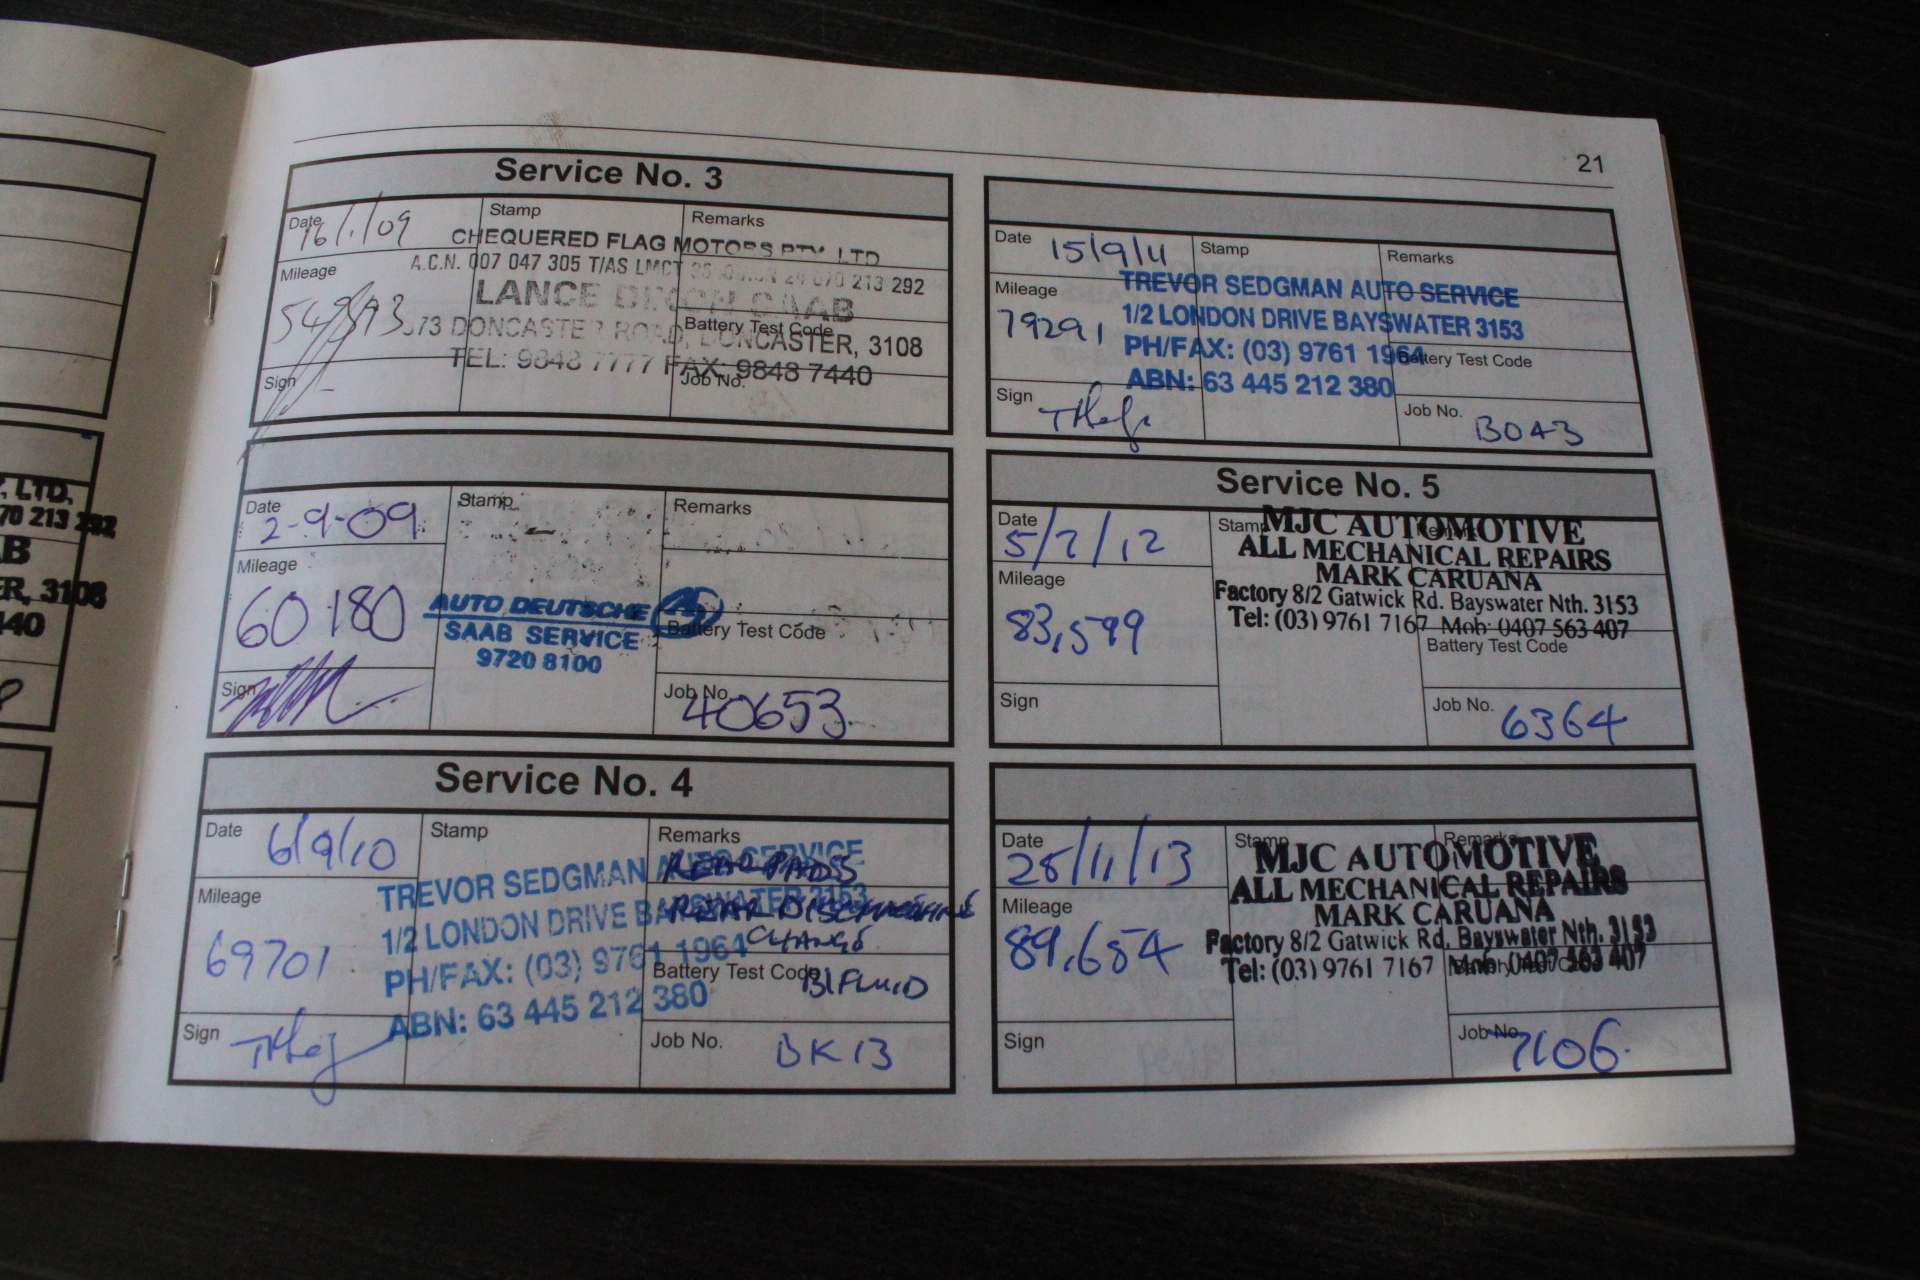 , LTD,
70 213 292
AB
ER, 3108
440
21
Service No. 3
Date 16/1/09
Stamp
Remarks
CHEQUERED FLAG MOTORS PTY. LTD
A.C.N. 007 047 305 T/AS LMCT 213 292
Mileage
LANCE DIXON SAAB
Battery Test Code
673 DONCASTER ROAD, DONCASTER, 3108
TEL: 9848 7777 FAX: 9848 7440
Sign
Job No.
Date 2-9-09
Stamp
Remarks
Mileage
60180
AUTO DEUTSCHE AD
SAAB SERVICE
9720 8100
Battery Test Code
Sign
Job No.
40653
Service No. 4
Date 6/9/10
Stamp
Remarks
REAR PADS
TREVOR SEDGMAN AUTO SERVICE
1/2 LONDON DRIVE BAYSWATER 3153
REAR DISC MACHINE
CHANGE
PH/FAX: (03) 9761 1964
ABN: 63 445 212 380
Mileage
69701
Battery Test Code
B/FLUID
Sign
Job No. BK13
Date 15/9/11
Stamp
Remarks
TREVOR SEDGMAN AUTO SERVICE
1/2 LONDON DRIVE BAYSWATER 3153
PH/FAX: (03) 9761 1964
ABN: 63 445 212 380
Mileage
79291
Battery Test Code
Sign
Job No. B043
Service No. 5
Date
5/7/12
Stamp
Remarks
MJC AUTOMOTIVE
ALL MECHANICAL REPAIRS
MARK CARUANA
Factory 8/2 Gatwick Rd. Bayswater Nth. 3153
Tel: (03) 9761 7167 Mob: 0407 563 407
Mileage
83,599
Battery Test Code
Sign
Job No. 6364
Date
28/11/13
Stamp
Remarks
MJC AUTOMOTIVE
ALL MECHANICAL REPAIRS
MARK CARUANA
Factory 8/2 Gatwick Rd. Bayswater Nth. 3153
Tel: (03) 9761 7167 Mob: 0407 563 407
Mileage
89,654
Battery Test Code
Sign
Job No. 7106.